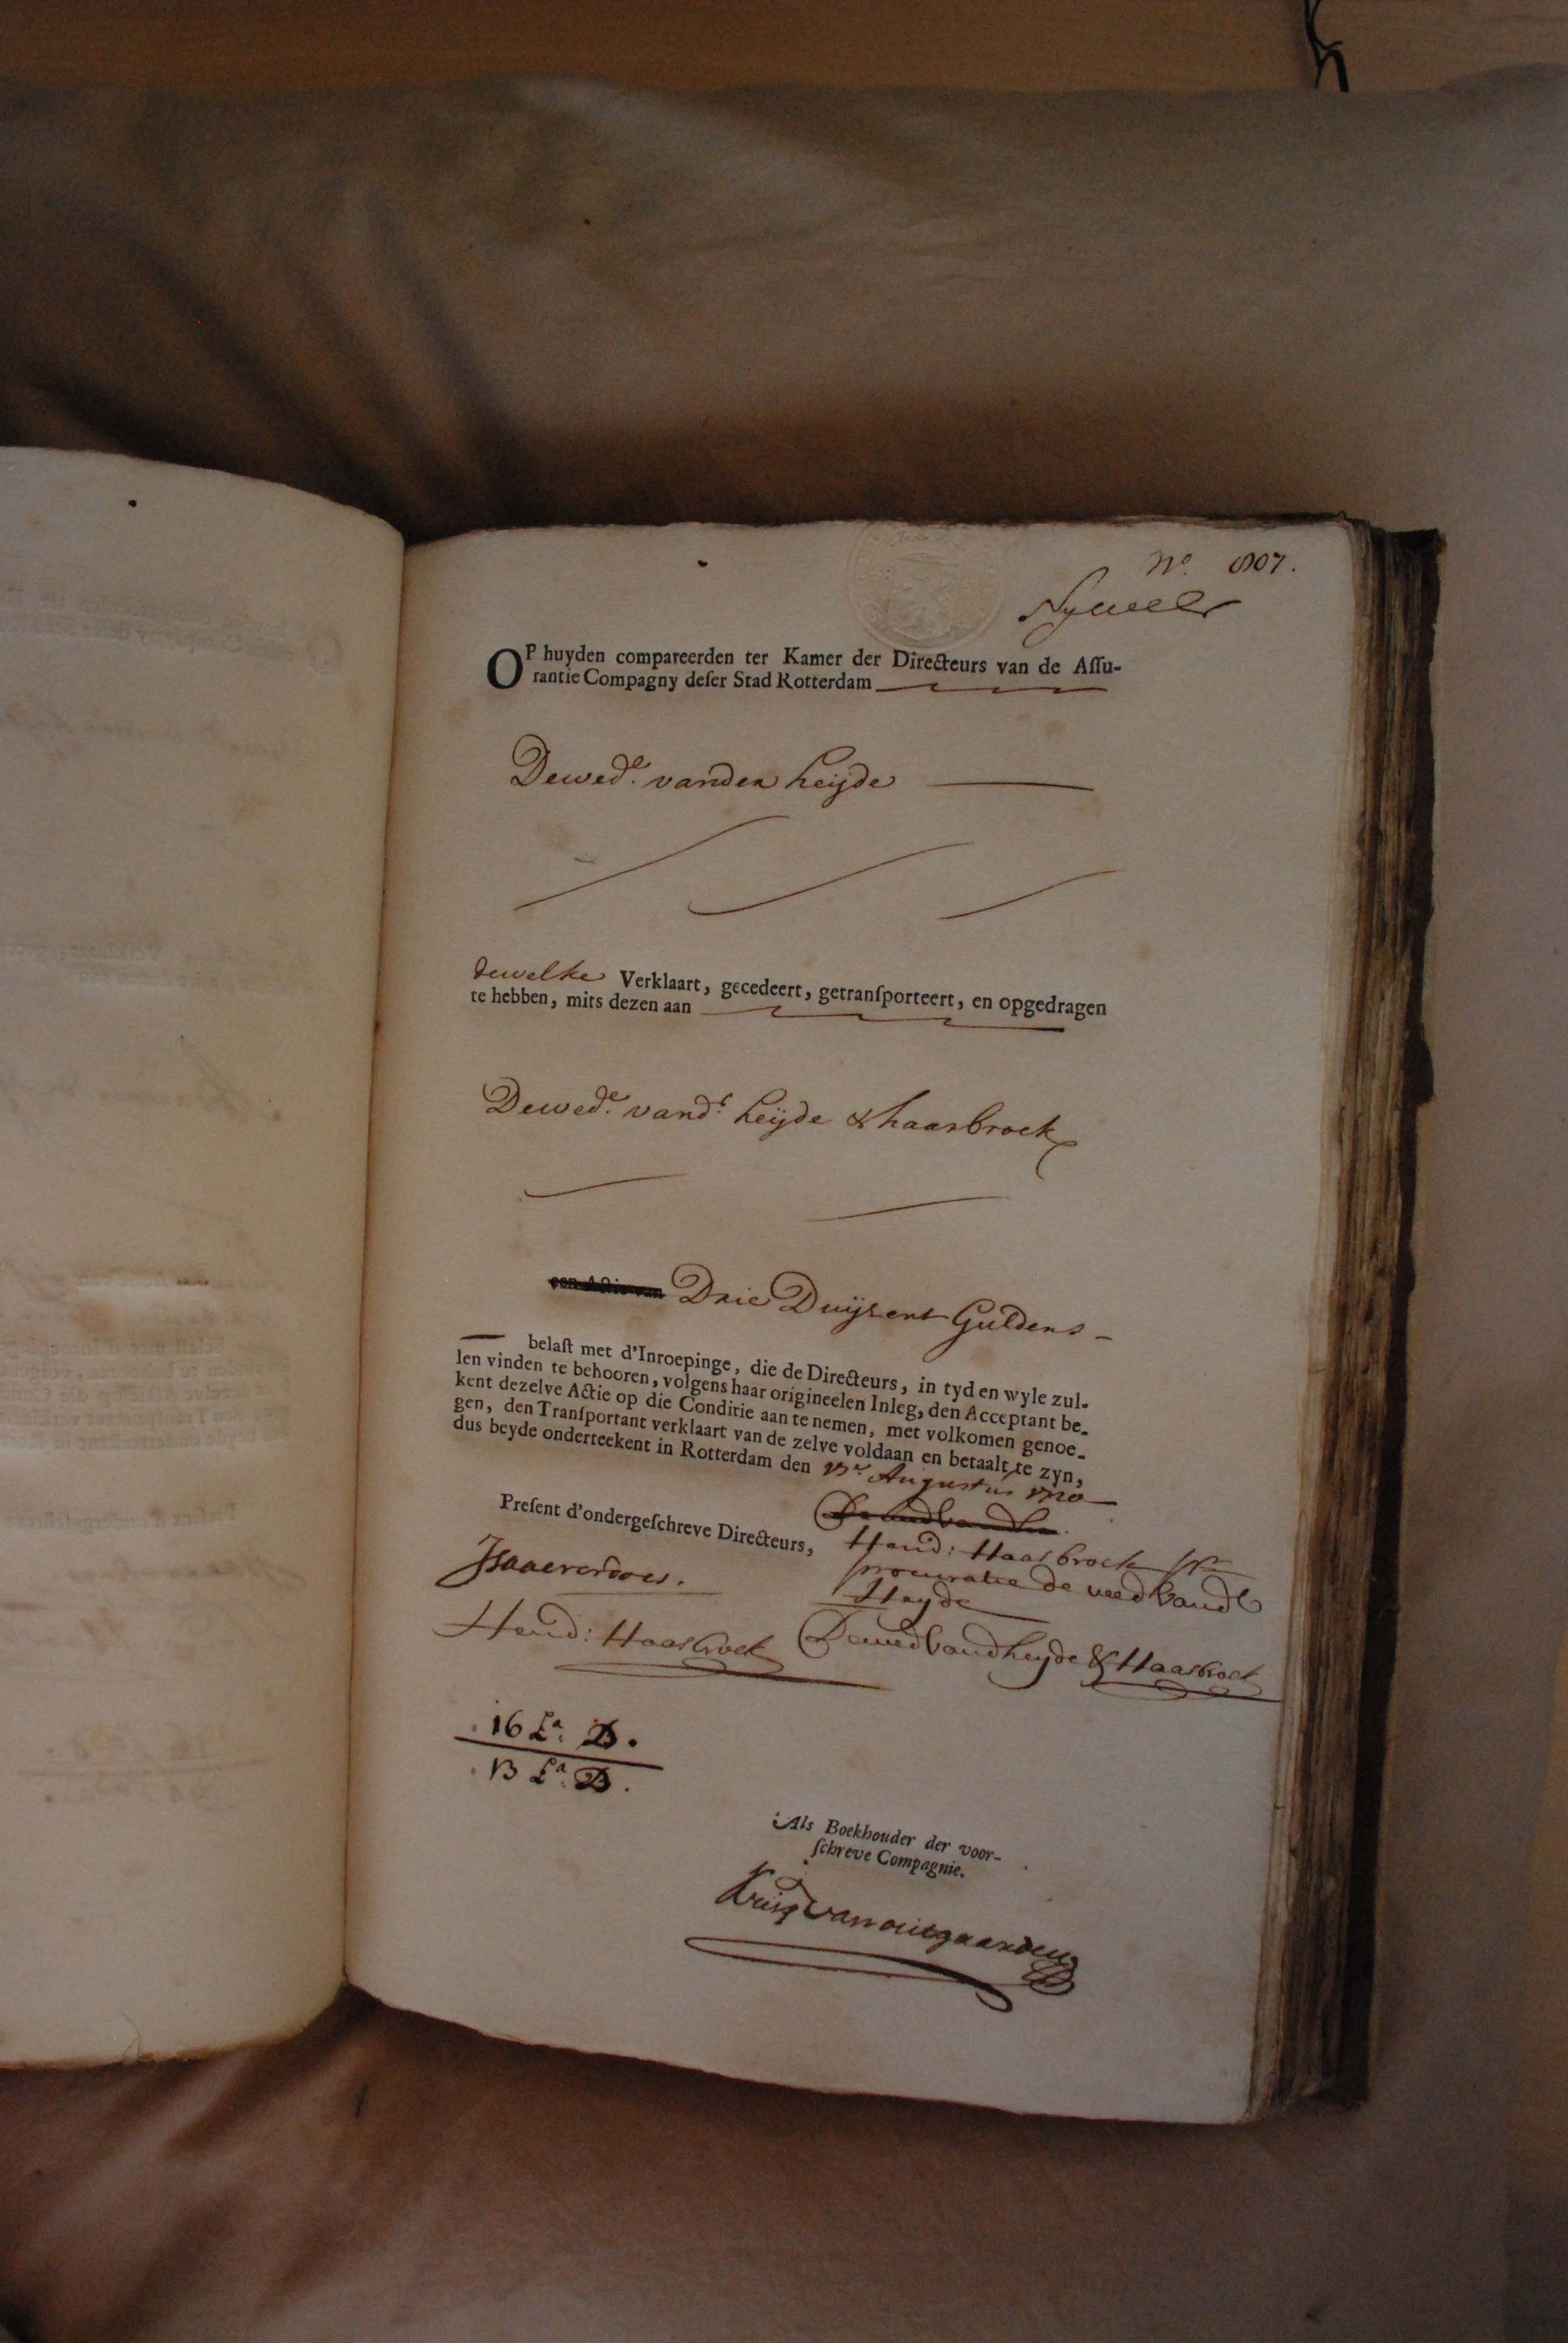 No. 807.
OP huyden compareerden ter Kamer der Directeurs van de Aſſu-
rantie Compagny deſer Stad Rotterdam
De wede. vanden heijde
dewelke Verklaart, gecedeert, getranſporteert, en opgedragen
te hebben, mits dezen aan
De wede. vandr. heijde & haasbroek
een Actie van Drie Duijsent Guldens
belaſt met d'Inroepinge, die de Directeurs, in tyd en wyle zul-
len vinden te behooren, volgens haar origineelen Inleg, den Acceptant be-
kent dezelve Actie op die Conditie aan te nemen, met volkomen genoe-
gen, den Tranſportant verklaart van de zelve voldaan en betaalt te zyn,
dus beyde onderteekent in Rotterdam den 13e. Augustus 1720
Preſent d'ondergeſchreve Directeurs,
Hend: Haasbroek pr
procuratie de wed vandr
Heyde
Hend: Haasbroek
De wed vand heyde & Haasbroek
16 La. D.
13 La. D.
Als Boekhouder der voor-
ſchreve Compagnie.